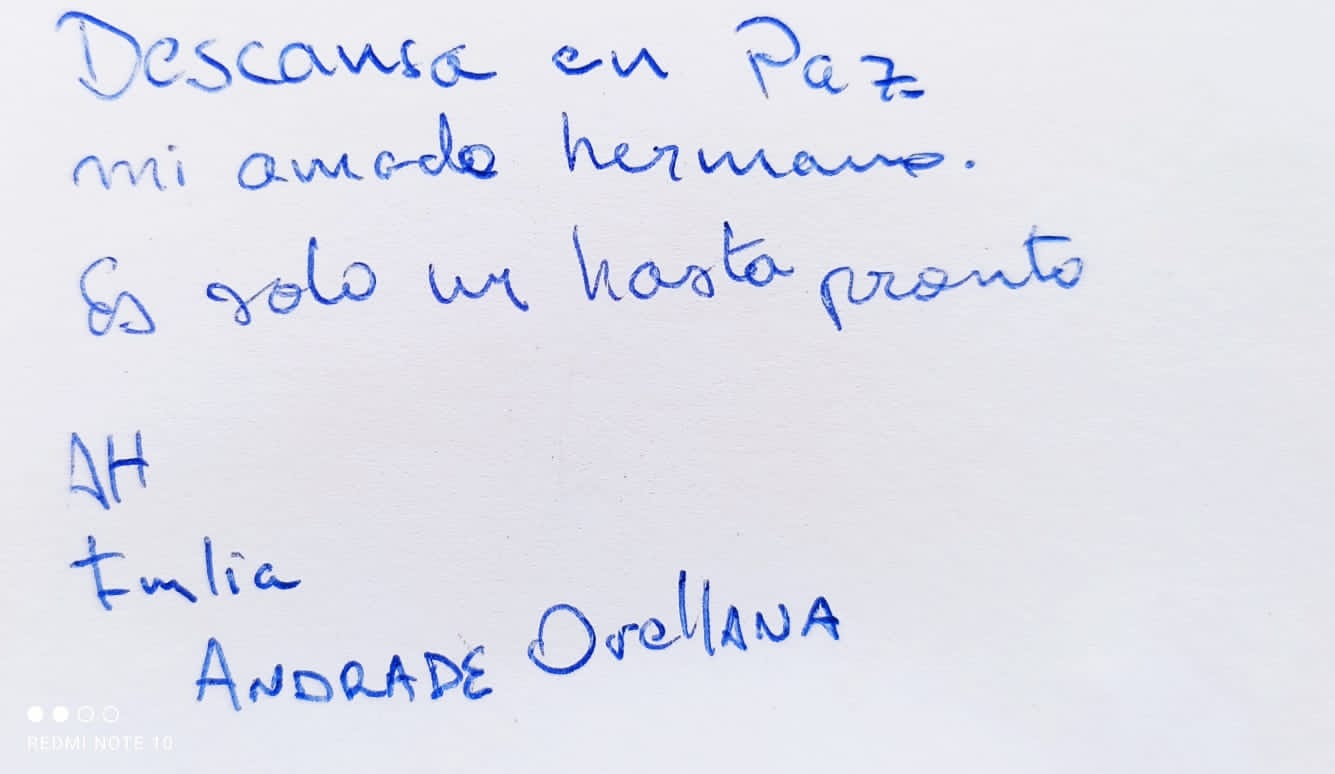 Descansa en Paz
mi amado hermano.
Es solo un hasta pronto
AH
Emilia
ANDRADE OrellANA
REDMI NOTE 10